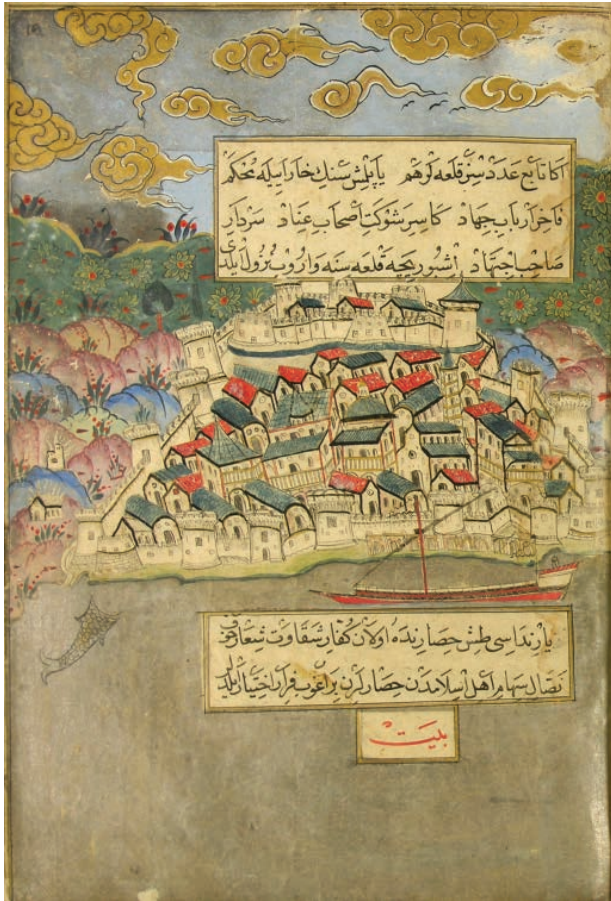 اكا تابع عدد سز قلعه لر هم يا پلمش سنك خارا ايله محكم
فاخر ارباب جهاد كاسر شوكت أصحاب عناد سردار
صاحب اجتهاد اشبو ريجه قلعه سنه واروب نزول ايلدى
يارنداسى طش حصارنده اولان كفار شقاوت
نصال سهام اهل اسلامدن حصارلرن براغوب فرار اختيار ايلد
بيت